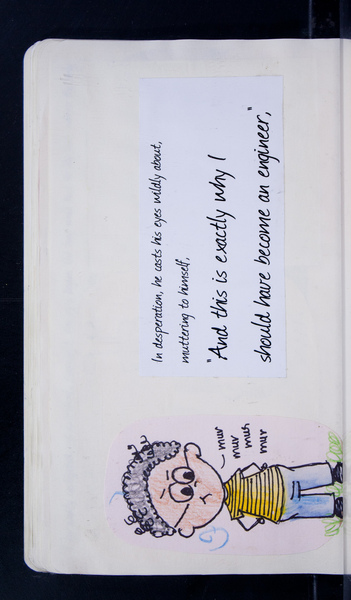 In desperation, he casts his eyes wildly about,
muttering to himself,
"And this is exactly why I
should have become an engineer,"
mur
mur
mur
mur